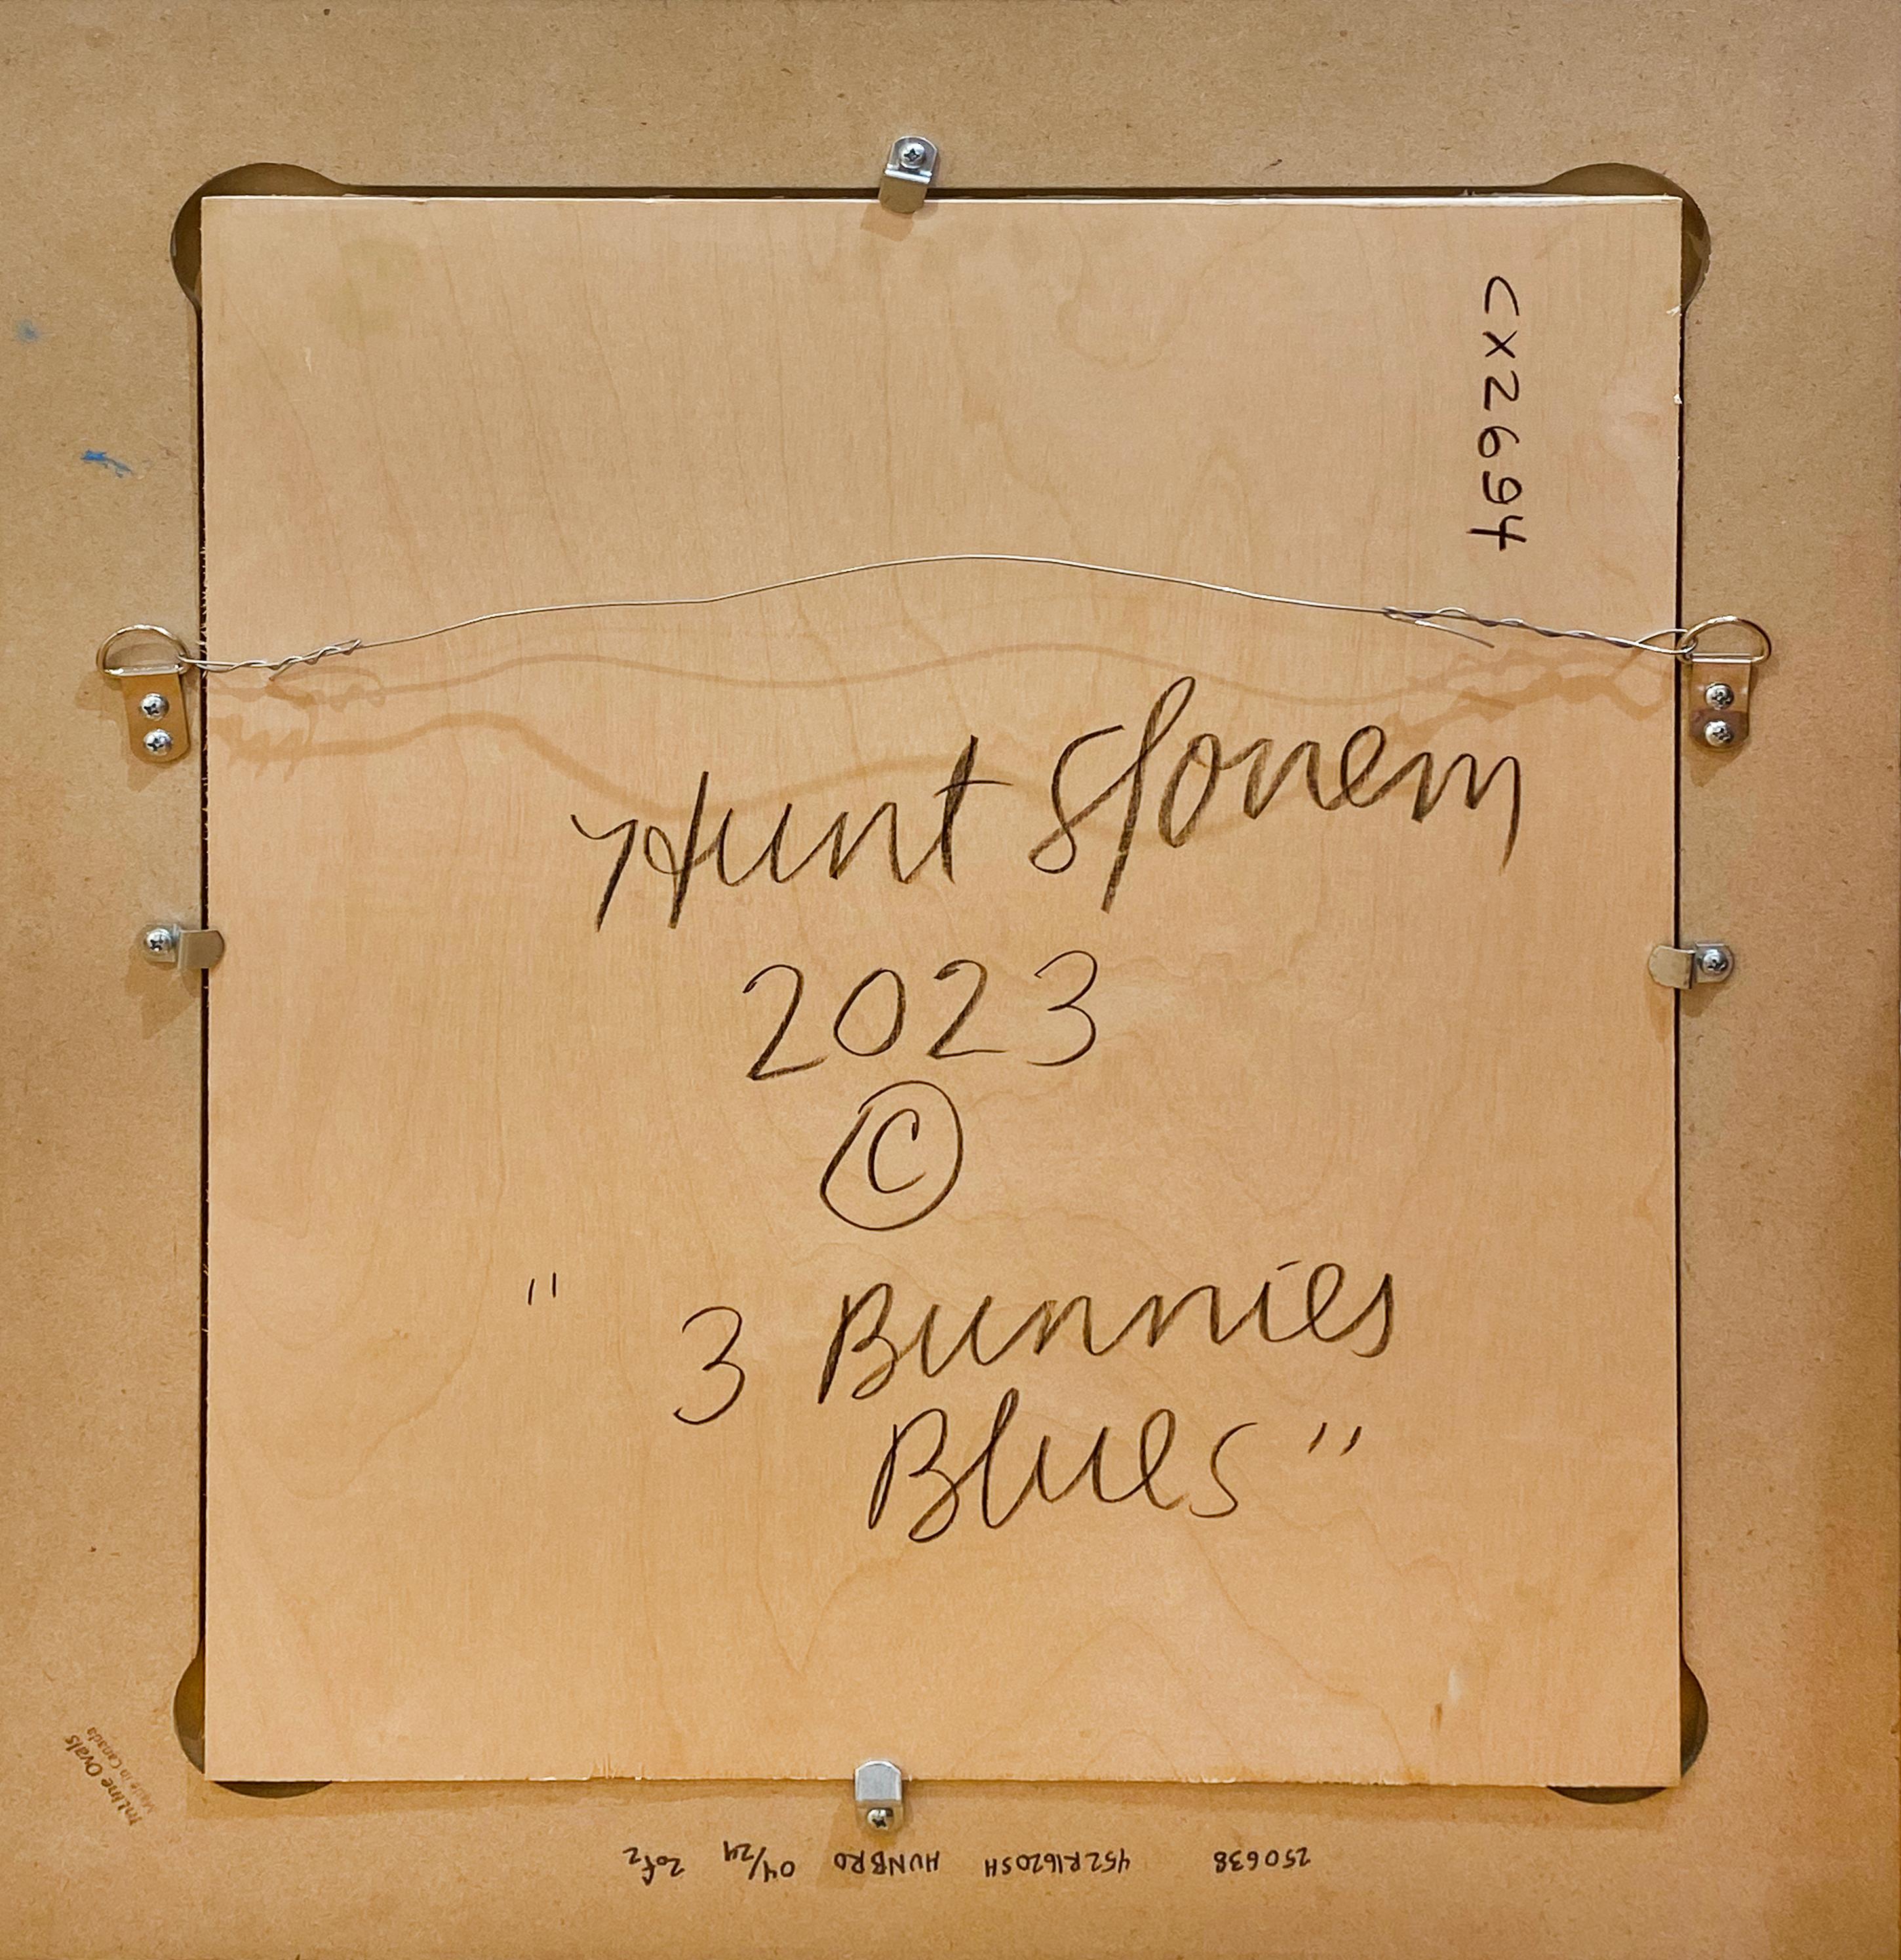 CX2694
Hunt Slonem
2023
©
" 3 Bunnies
Blues "
250638 452R1620SH HUNBRO 04/24 2of2
Made in Canada